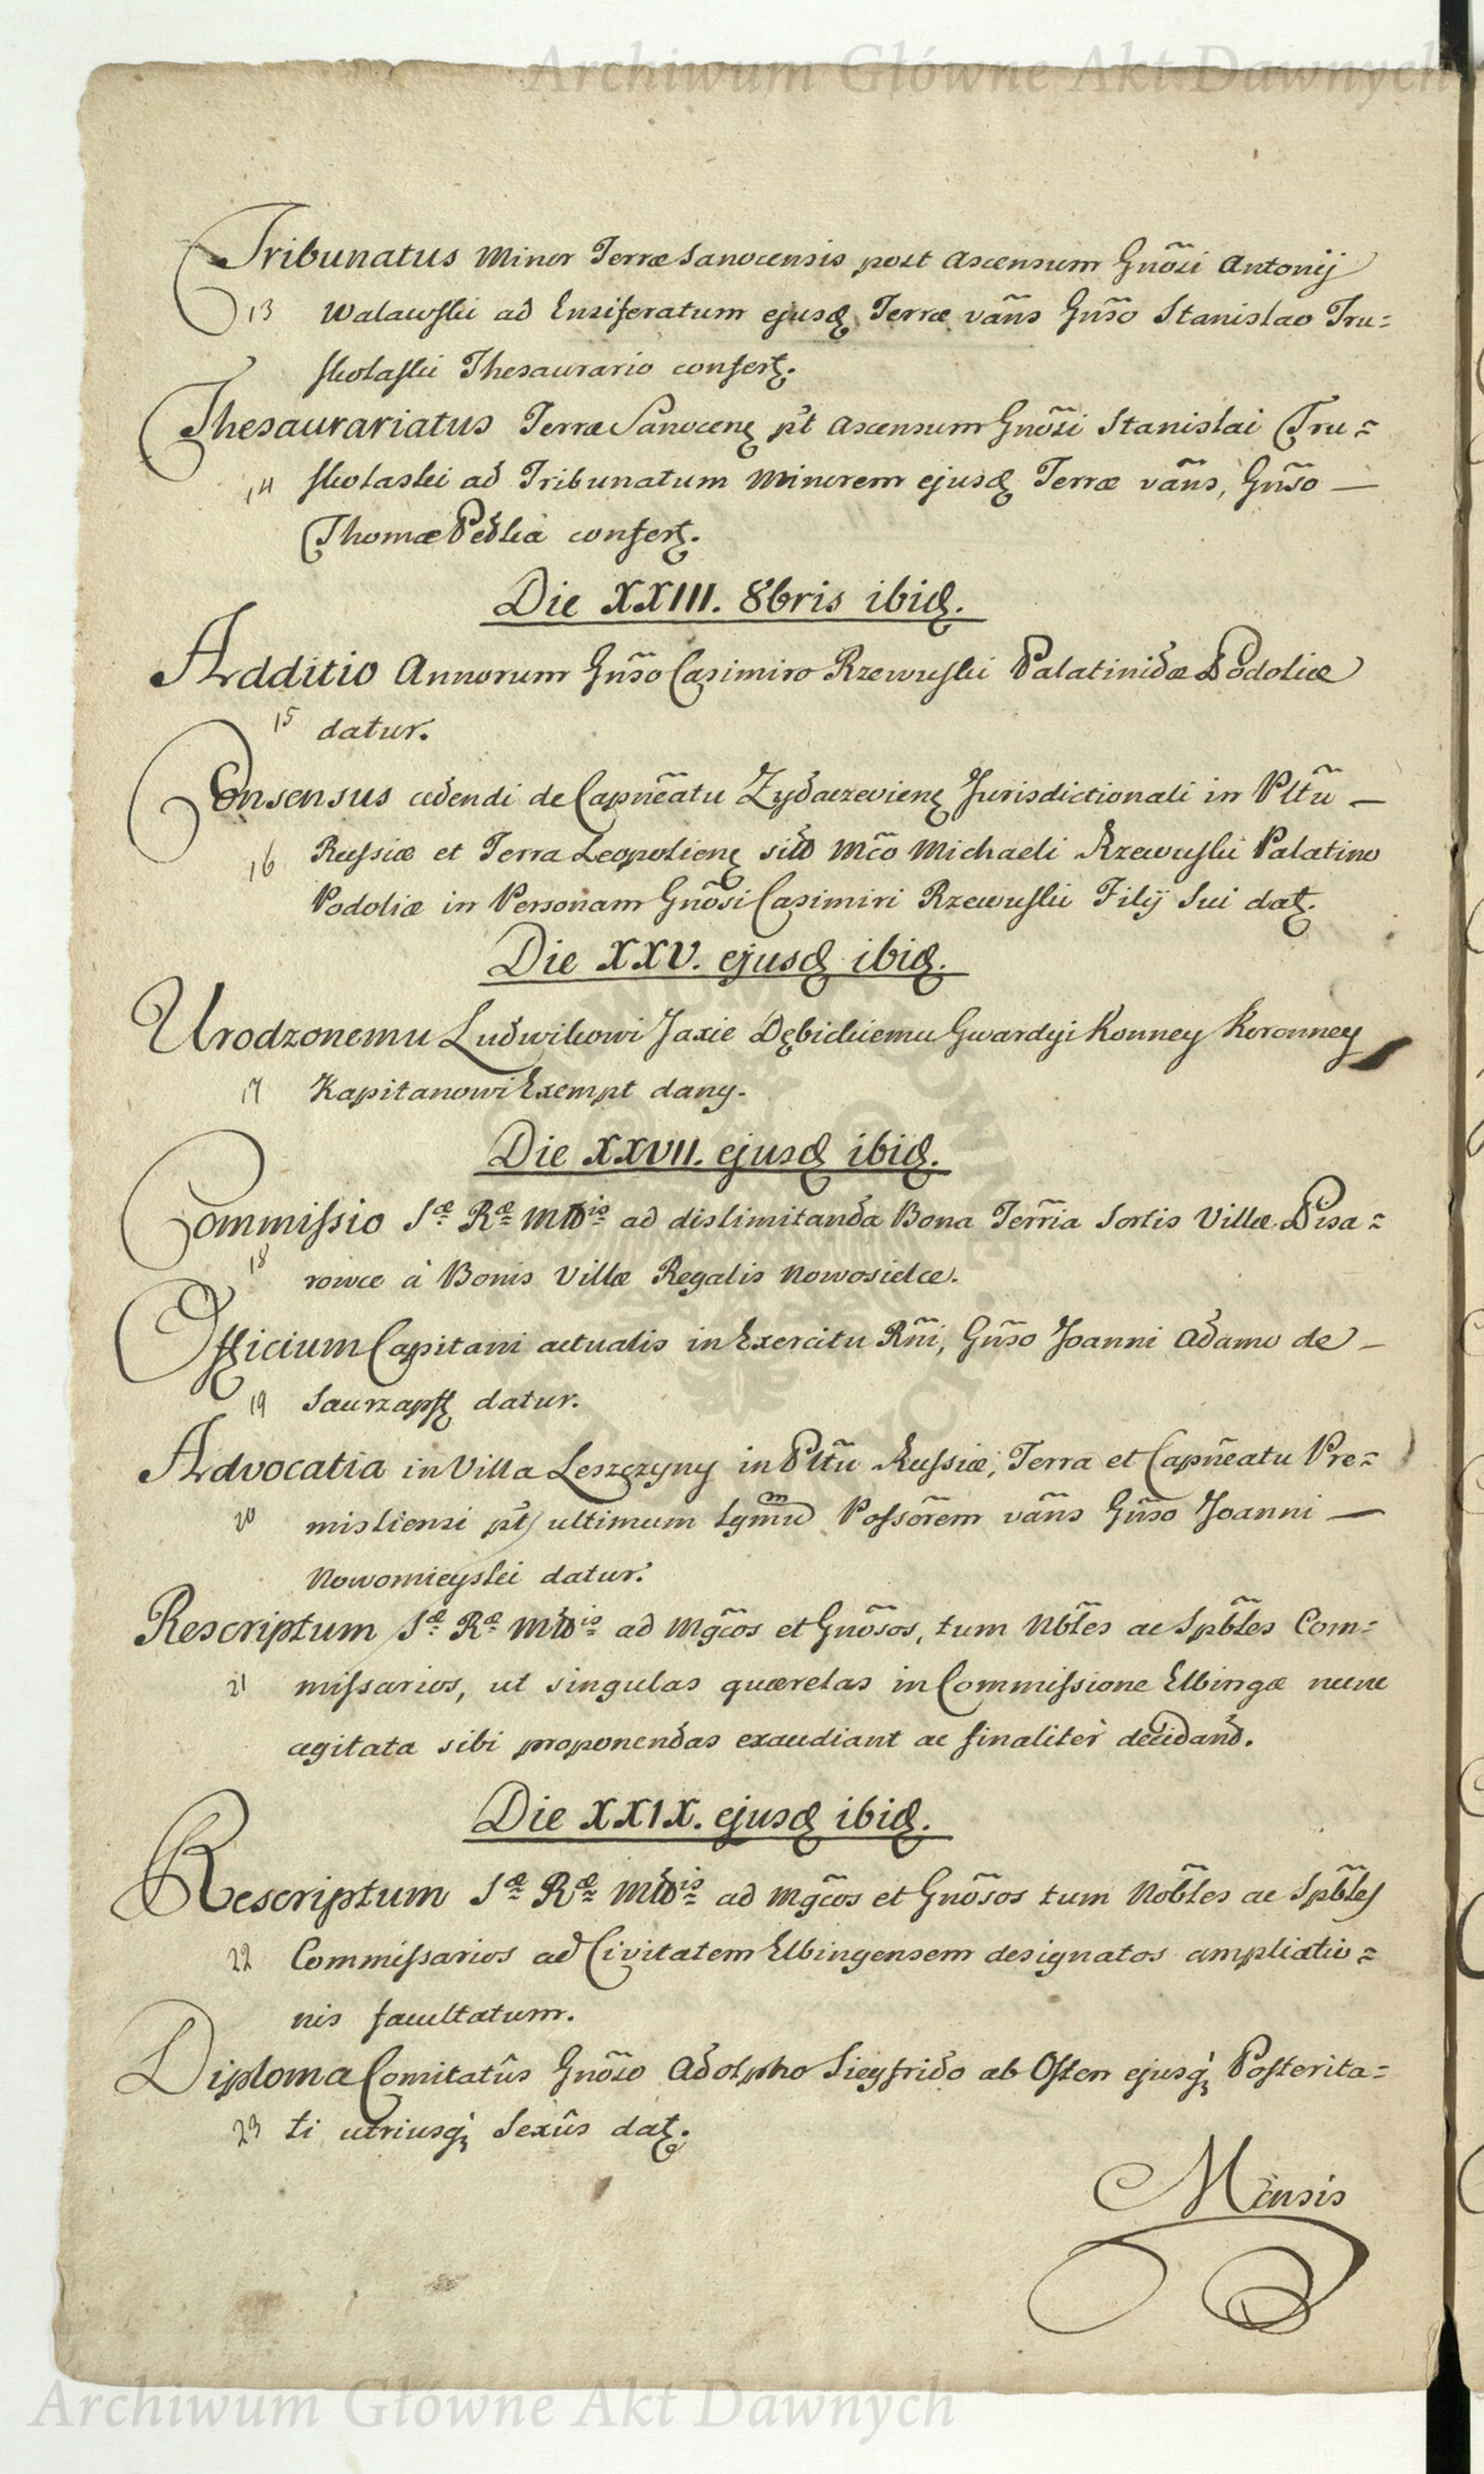 Archiwum Główne Akt Dawnych
Tribunatus Minor Terræ Sanocensis post ascensum Gnõsi Antonij
13 Walawski ad Ensiferatum ejusd. Terræ vãns Gñso Stanislao Tru=
skolaski Thesaurario confert.
Thesaurariatus Terræ Sanocen. pt ascensum Gnõsi Stanislai Tru=
14 skolaski ad Tribunatum Minorem ejusd. Terræ vãns, Gñso —
Thomæ Pedlia confert.
Die XXIII. 8bris ibid.
Additio Annorum Gñso Casimiro Rzewuski Palatinidæ Podoliæ
15 datur.
Consensus cedendi de Capnẽatu Zydaczevien. Jurisdictionali in Pltũ —
16 Russiæ et Terra Leopolien. sito Mco Michaeli Rzewuski Palatino
Podoliæ in Personam Gnõsi Casimiri Rzewuski Filij Sui dat.
Die XXV. ejusd ibid.
Urodzonemu Ludwikowi Jaxie Dębickiemu Gwardyi Konney Koronney
17 Kapitanowi Exempt dany.
Die XXVII. ejusd ibid.
Commissio Sæ Ræ Mttis ad dislimitanda Bona Terrria Sortis Villæ Pisa=
18 rowce à Bonis Villæ Regalis Nowosielce.
Officium Capitani actualis in Exercitu Rñi, Gñso Joanni Adamo de —
19 Saurzapff datur.
Advocatia in Villa Leszczyny in Pltũ Russiæ, Terra et Capñeatu Pre=
20 misliensi pt ultimum Lgmũ Possõrem vãns Gñso Joanni —
Nowomieyski datur.
Rescriptum Sæ Ræ Mttis ad Mgcos et Gnõsos, tum Nbĩles ac Spbĩles Com=
21 missarios, ut singulas quærelas in Commissione Elbingæ nunc
agitata sibi proponendas exaudiant ac finalitèr decidand.
Die XXIX. ejusd ibid.
Rescriptum Sæ Ræ Mttis ad Mgcos et Gnõsos tum Nobĩles ac Spbĩles
22 Commissarios ad Civitatem Elbingensem designatos ampliatio=
nis facultatum.
Diploma Comitatûs Gnõso Adolpho Siegfrido ab Osten ejusq; Posterita=
23 ti utriusq; Sexûs dat.
Mensis
Archiwum Główne Akt Dawnych